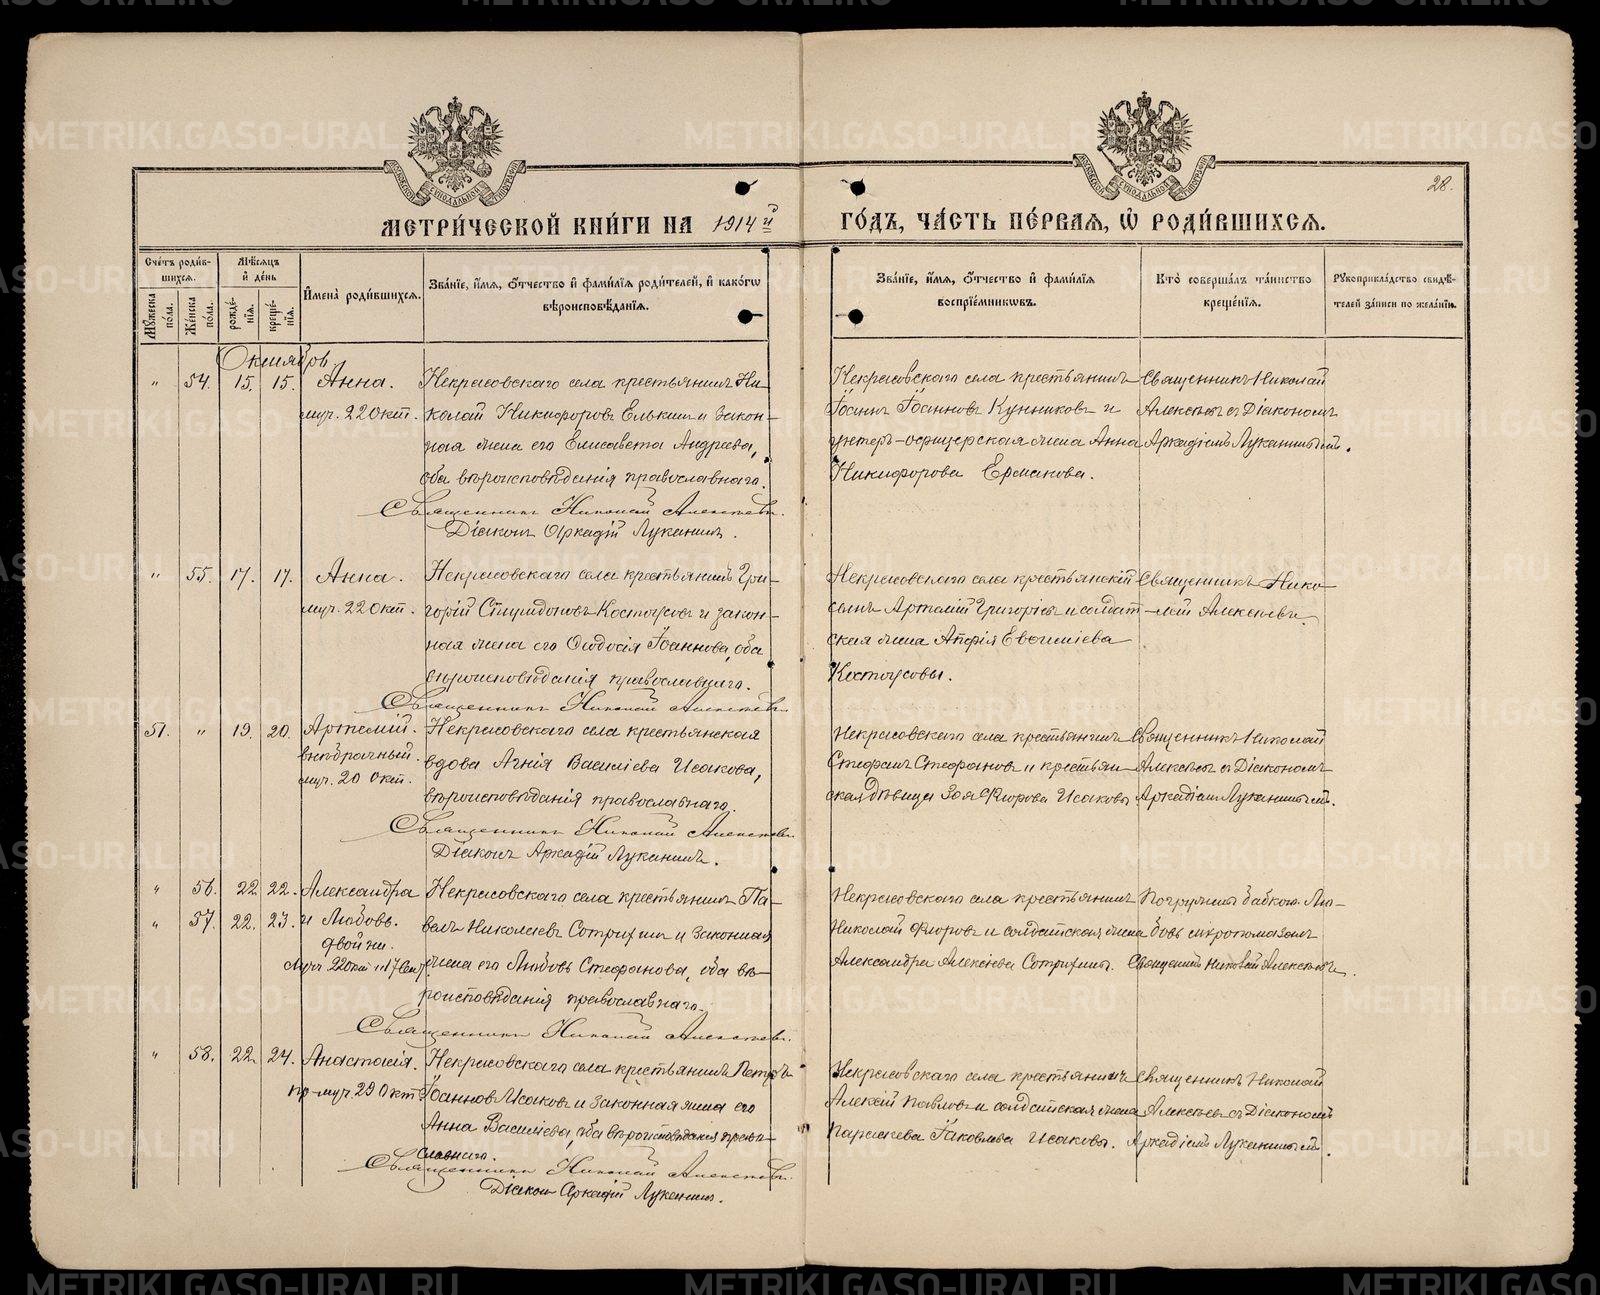 28.
МЕТРИ́ЧЕСКОЙ КНИ́ГИ НА 1914 й ГО́ДЪ, ЧА́СТЬ ПЕ́РВАЯ, Ѡ РОДИ́ВШИХСЯ.
Сче́тъ роди́вшихся.
Му́жеска по́ла.
Же́нска по́ла.
Мѣ́сяцъ и́ де́нь
рожде́нїя.
креще́нїя.
И҆мена̀ роди́вшихся.
Зва́нїе, и҆́мѧ, о҆́тчество и҆ фами́лїѧ роди́телей, и҆ како́гѡ вѣроисповѣ́данїѧ.
Зва́нїе, и҆́мѧ, о҆́тчество и҆ фами́лїѧ воспрїе́мникѡвъ.
Кто̀ соверша́лъ та́инство креще́нїѧ.
Рꙋкоприкла́дство свидѣ́телей за́писи по жела́нїю.
Октябрь
" 54. 15. 15. Анна.
муч. 22 Окт.
Некрасовскаго села крестьянинъ Ни-
колай Никифоровъ Елькинъ и закон-
ная жена его Елисавета Андреева,
оба вѣроисповѣданія православнаго.
Священникъ Николай Алексѣевъ.
Діаконъ Аркадій Луканинъ.
Некрасовскаго села крестьянинъ
Іоаннъ Іоанновъ Кунниковъ и
унтеръ-офицерская жена Анна
Никифорова Ермакова.
Священникъ Николай
Алексѣевъ съ Діакономъ
Аркадіемъ Луканинымъ.
" 55. 17. 17. Анна.
муч. 22 Окт.
Некрасовскаго села крестьянинъ Гри-
горій Спиридоновъ Костоусовъ и закон-
ная жена его Ѳеодосія Іоаннова, оба
вѣроисповѣданія православнаго.
Священникъ Николай Алексѣевъ.
Некрасовскаго села крестьянскій
сынъ Артемій Григоріевъ и солдат-
ская жена Евѳиміева
Костоусовы.
Священникъ Нико-
лай Алексѣевъ.
51. " 19. 20. Артемій.
внѣбрачный.
муч. 20 Окт.
Некрасовскаго села крестьянская
вдова Агнія Василіева Исакова,
вѣроисповѣданія православнаго.
Священникъ Николай Алексѣевъ.
Діаконъ Аркадій Луканинъ.
Некрасовскаго села крестьянинъ
Стефанъ Стефановъ и крестьян-
ская дѣвица Зоя Флорова Исаковы
Священникъ Николай
Алексѣевъ съ Діакономъ
Аркадіемъ Луканинымъ.
" 56. 22. 22. Александра
" 57. 22. 23. и Любовь.
двойни.
Муч. 22 Окт. и 17 Сент.
Некрасовскаго села крестьянинъ Па-
велъ Николаевъ Сотрихинъ и законная
жена его Любовь Стефанова, оба вѣ-
роисповѣданія православнаго.
Священникъ Николай Алексѣевъ.
Некрасовскаго села крестьянинъ
Николай Флоровъ и солдатская жена
Александра Алексіева Сотрихины.
Погружена бабкою. Лю-
бовь миропомазалъ
Священникъ Николай Алексѣевъ.
" 58. 22. 24. Анастасія.
пр-муч. 29 Окт.
Некрасовскаго села крестьянинъ Петръ
Іоанновъ Исаковъ и законная жена его
Анна Василіева, оба вѣроисповѣданія право-
славнаго.
Священникъ Николай Алексѣевъ.
Діаконъ Аркадій Луканинъ.
Некрасовскаго села крестьянинъ
Алексій Павловъ и солдатская жена
Параскева Іаковлева Исаковы.
Священникъ Николай
Алексѣевъ съ Діакономъ
Аркадіемъ Луканинымъ.
METRIKI.GASO-URAL.RU